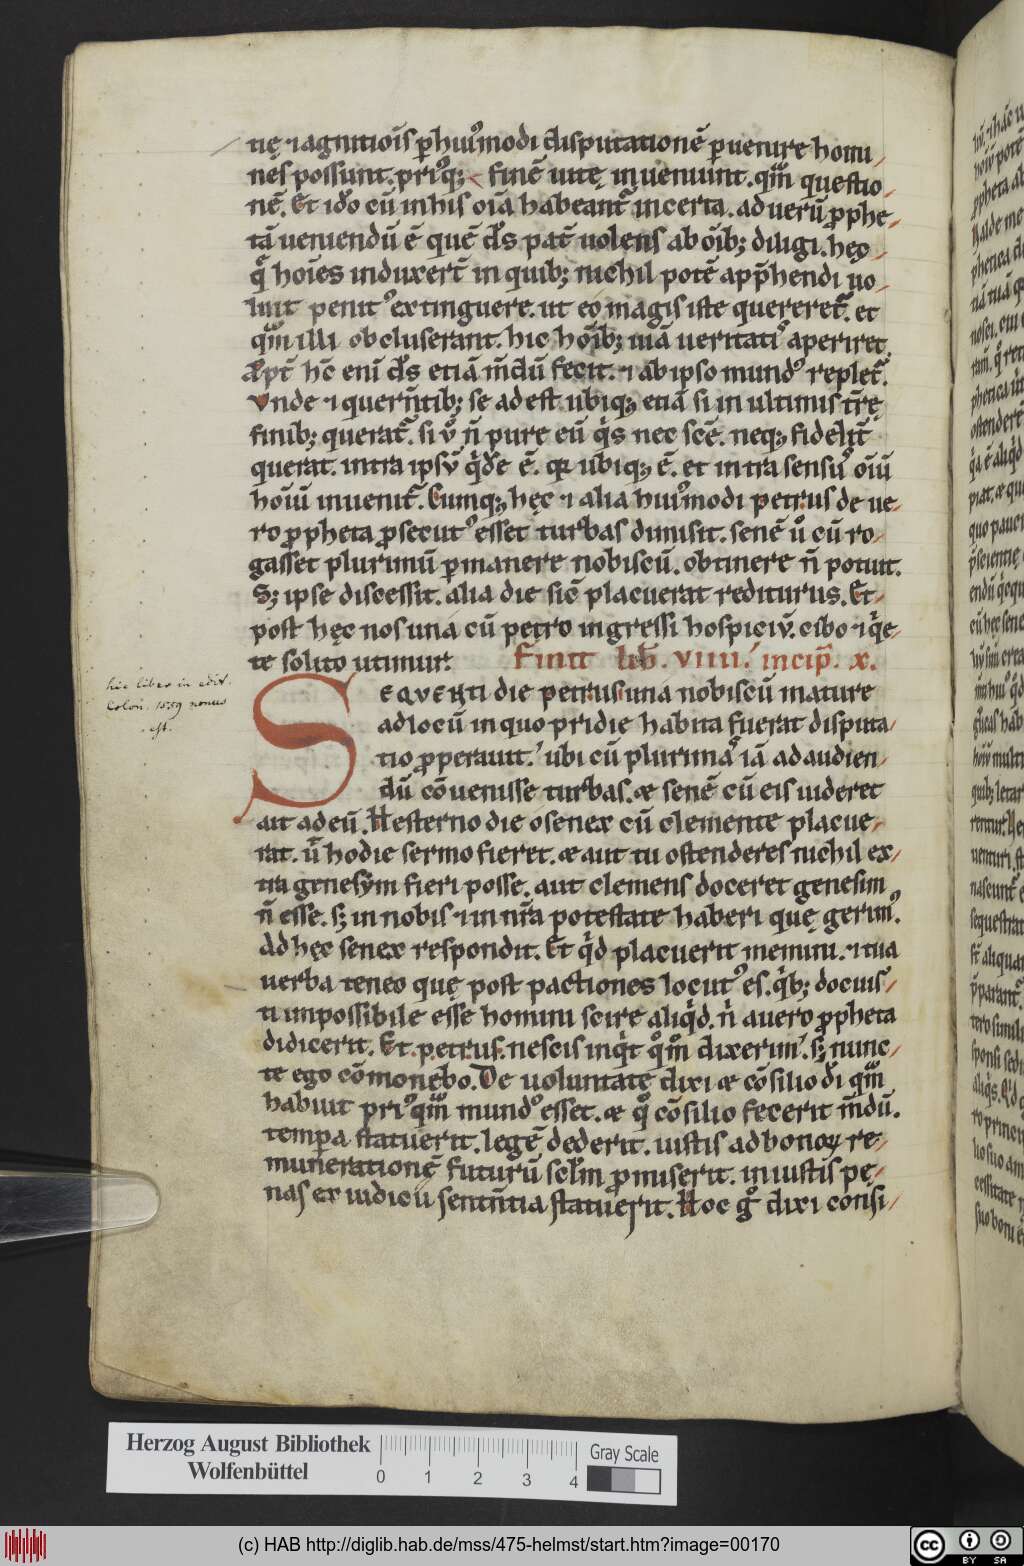 tię ⁊ agnitiois̄ ꝑ huiꝰmodi disputationē ꝑuenire homi
nes possunt. priꝰq; finē uitę inueniunt. qm̄ questio
nē. Et iđo cū in his oīa habeant᷑ incerta. ad uerū ꝓphe
tā ueniendū ē quē d̄s pat̄ uolens ab oīb; diligi. hęo
q̄ hoīes induxer̄t in quib; nichil potē app̄hendi uo
luit penitꝰ extinguere. ut eo magis iste quereret᷑. et
qm̄ illi obcluserant. hic hoīb; uiā ueritatiꝰ aperiret.
hc̄ enī d̄s etiā m̄dū fecit. ⁊ ab ipso mundꝰ replet᷑.
Vnde ⁊ quer̄ntib; se adest ubiq; etiā si in ultimis t̄rę
finib; querat᷑. si v̄ n̄ pure eū q̍s nec sc̄e. neq; fidelit̄
querat. intra ipsv̄ q̍dē ē. ubiq; ē. et intra sensuꝰ oīū
hoīū inuenit᷑. Cumq; hęc ⁊ alia huiꝰmodi petrus de ue
ro ꝓpheta ꝓsecutꝰ esset turbas dimisit. senē ū cū ro
gasset plurimū ꝑmanere nobiscū. obtinere n̄ potuit.
S; ipse discessit. alia die sic̄ placuerat rediturus. Et
post hęc nos una cū petro ingressi hospiciv̄. cibo ⁊ q̍e
te solito utimur.
Finit lib̄. VIIII. incip̄. x.
SEQVENTI die petrus una nobiscū mature
ad locū in quo pridie habita fuerat disputa
tio ꝓperauit. ubi cū plurima iā ad audien
dū cōuenisse turbas. æ senē cū eis uideret
ait ad eū. Hesterno die o senex cū clemente placue
rat. ū hodie sermo fieret. æ aut tu ostenderes nichil ex
tra genesym fieri posse. aut clemens doceret genesim
n̄ esse. s; in nobis ⁊ in nr̄a potestate haberi quę gerimꝰ.
Ad hęc senex respondit. Et q̍d placuerit memini. ⁊ tua
uerba teneo quę post pactiones locutꝰ es. q̍b; docuis
ti impossibile esse homini scire aliq̍d. n̍ a uero ꝓpheta
didicerit. Et petrus. nescis inq̍t qm̄ dixerimꝰ. s; nunc
te ego cōmonebo. De uoluntate dixi æ cōsilio dī qm̄
habuit priꝰqm̄ mundꝰ esset. æ q̊ cōsilio fecerit m̄dū.
tempa statuerit. legē dederit. iustis ad bonoꝝ re
munerationē futurū sclm̄ ꝓmiserit. iniustis pę
nas ex iudicii sentn̄tia statuerit. Hoc g̊ dixi consi
hic liber in edit.
Colon. 1559 nonus
est.
Herzog August Bibliothek
Wolfenbüttel
0 1 2 3 4
Gray Scale
(c) HAB http://diglib.hab.de/mss/475-helmst/start.htm?image=00170
cc BY SA